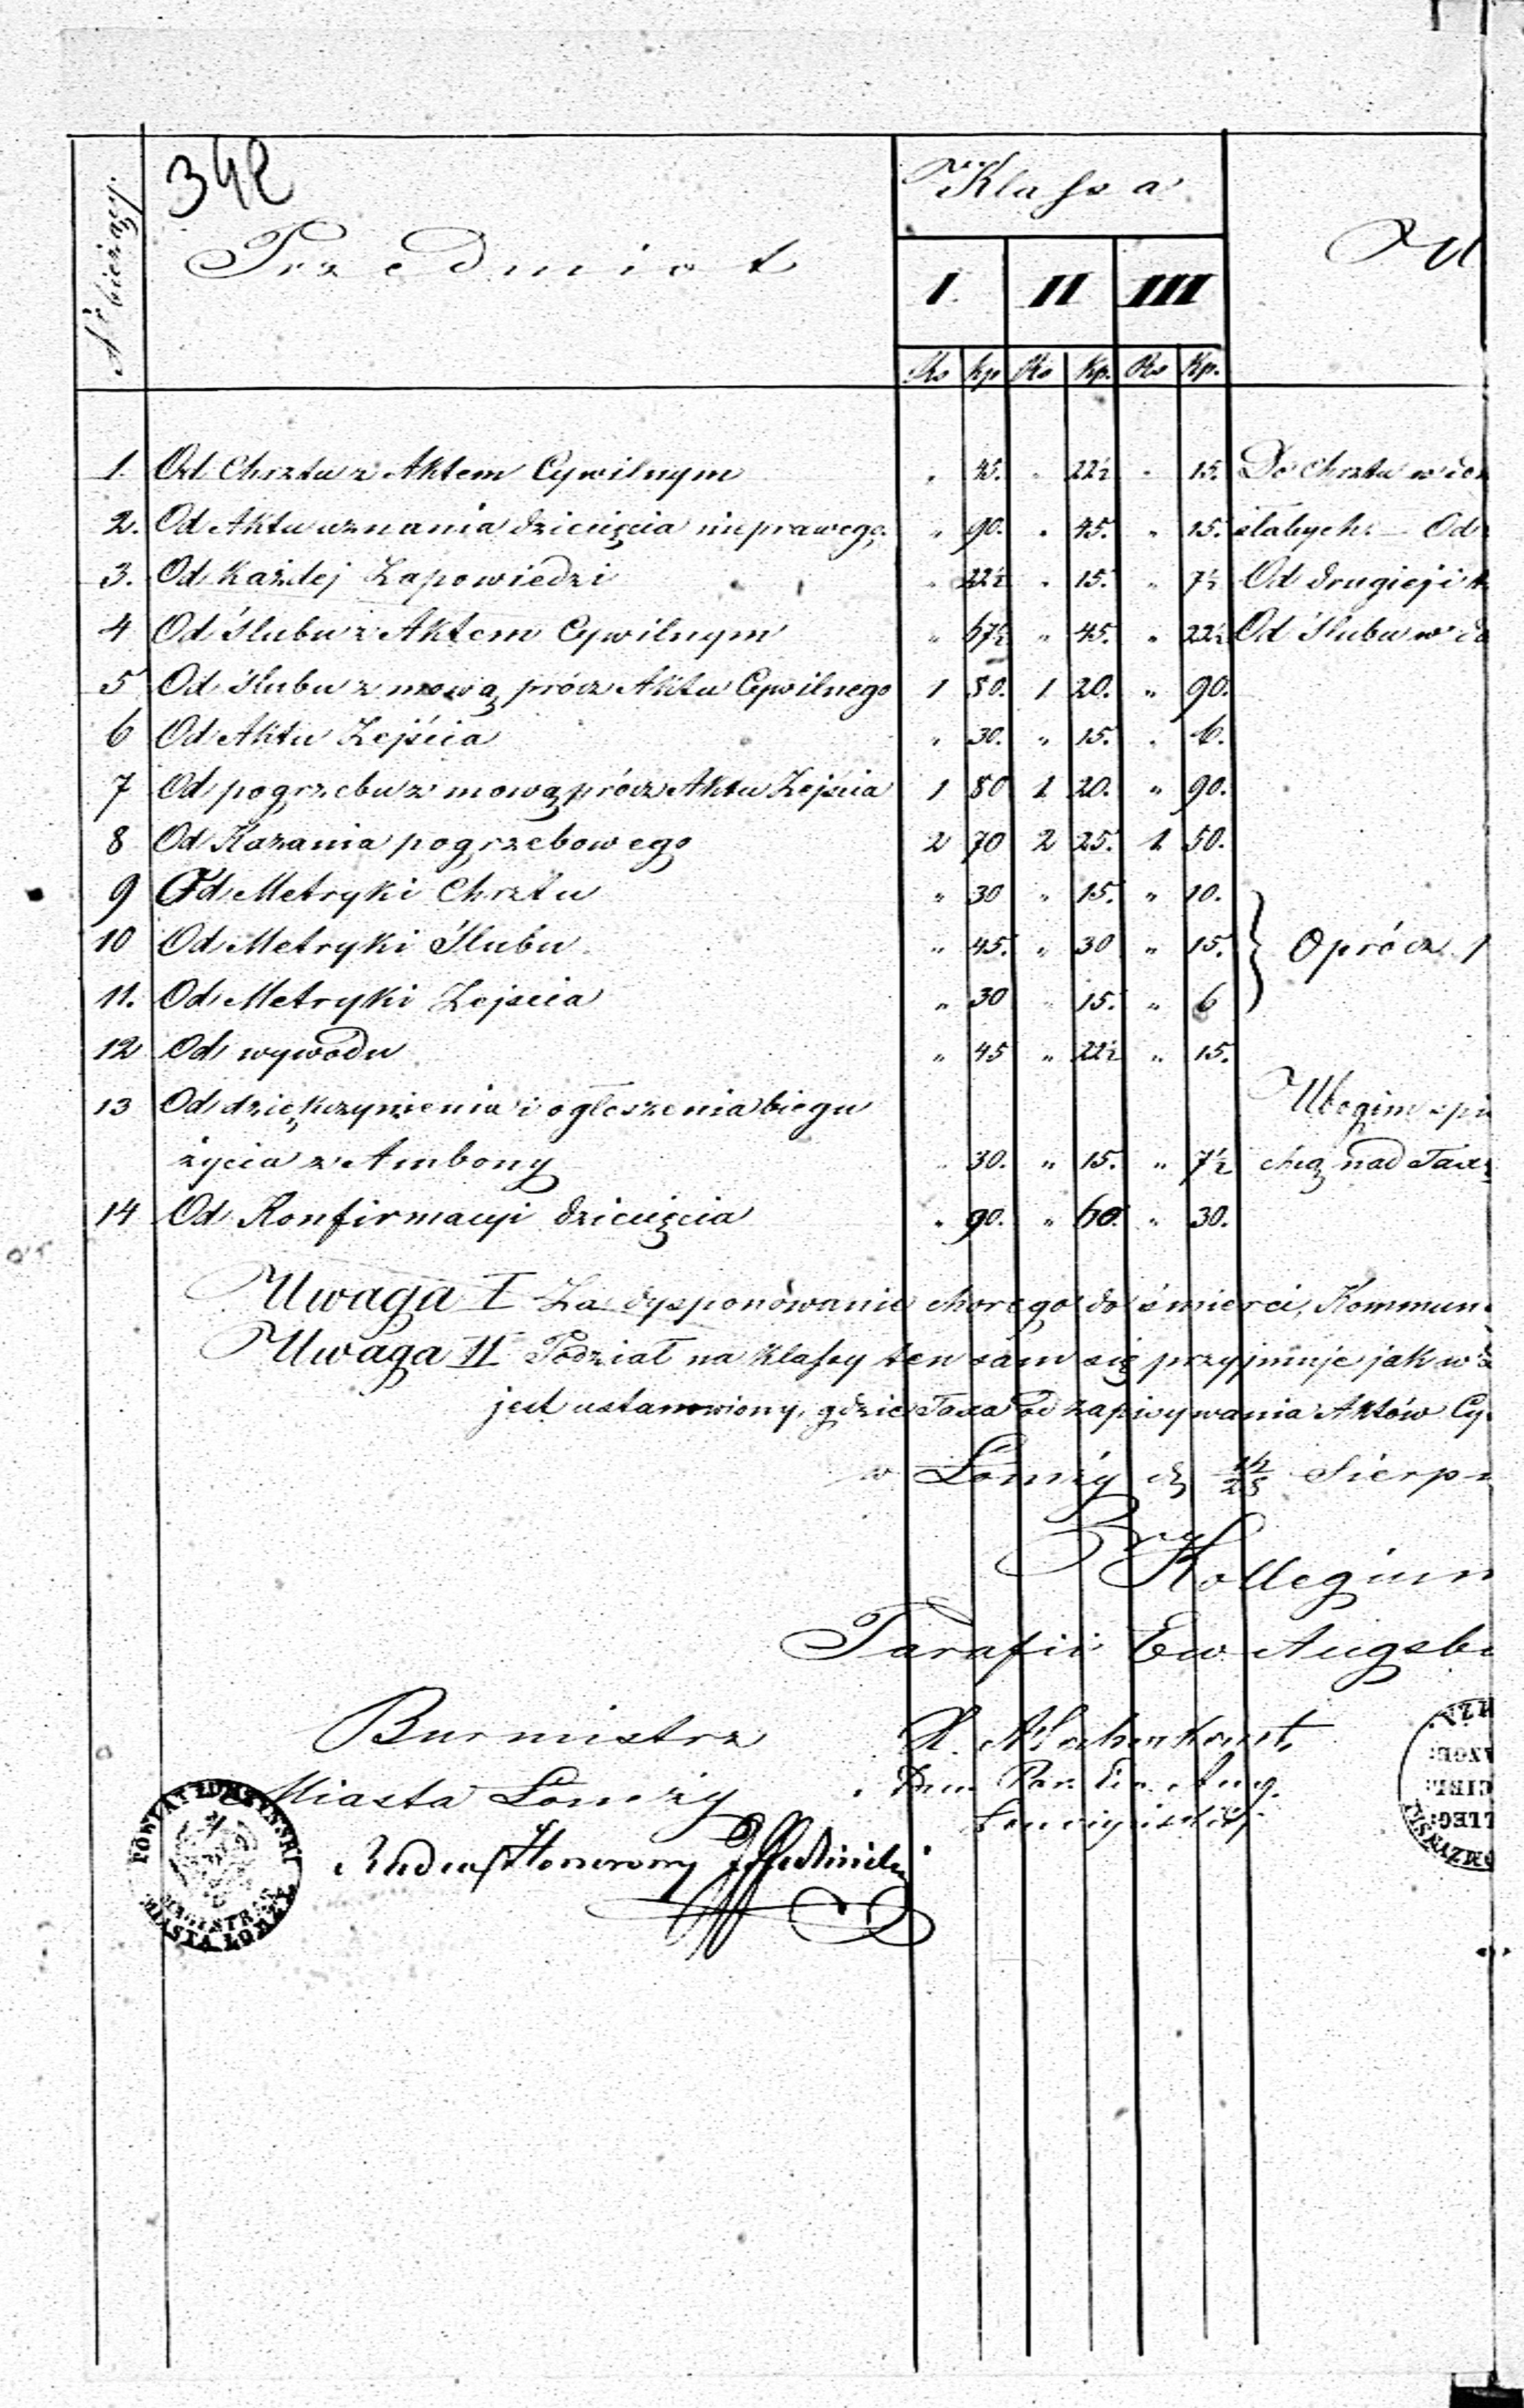 342
Nr bieżący.
Przedmiot
Klassa
U
I. II III
Rs Kp Rs Kp. Rs Kp.
1. Od Chrztu z Aktem Cywilnym " 45. " 22½ " 15. Do Chrztu w
2. Od Aktu uznania dziecięcia nieprawego. " 90. " 45. " 15. słabych. – Od
3. Od Każdej Zapowiedzi " 22½ " 15. " 7½ Od drugiej i
4 Od Ślubu z Aktem Cywilnym " 67½ " 45. " 22½ Od Ślubu w
5 Od Ślubu z mową prócz Aktu Cywilnego 1 80. 1 20. " 90.
6 Od Aktu Zejścia " 30. " 15. " 6.
7 Od pogrzebu z mową prócz Aktu Zejścia 1 80 1 20. " 90.
8 Od Kazania pogrzebowego 2 70 2 25. 1 50.
9 Od Metryki Chrztu " 30 " 15. " 10.
10 Od Metryki Ślubu " 45. " 30 " 15. Oprócz
11. Od Metryki Zejscia " 30 " 15. " 6
12 Od wywodu " 45 " 22½ " 15.
13 Od dziękczynienia i ogłoszenia biegu Ubogim
życia z Ambony " 30. " 15. " 7½ chcą nad Tax
14 Od Konfirmacyi dziecięcia " 90. " 60. " 30.
Uwaga I Za dysponowanie chorego do śmierci, Kommun
Uwaga II Podział na klassy ten sam się przyjmuje jak w
jest ustanowiony, gdzie Taxa od zapisywania Aktów Cy
w Łomży d. Sierp
Kollegium
Parafii Ew Augsb
Burmistrz
Miasta Łomży
Par. Ew. Aug.
Radca Honorowy
POWIAT ŁOMŻYŃSKI
MAGISTRAT
MIASTA ŁOMŻY